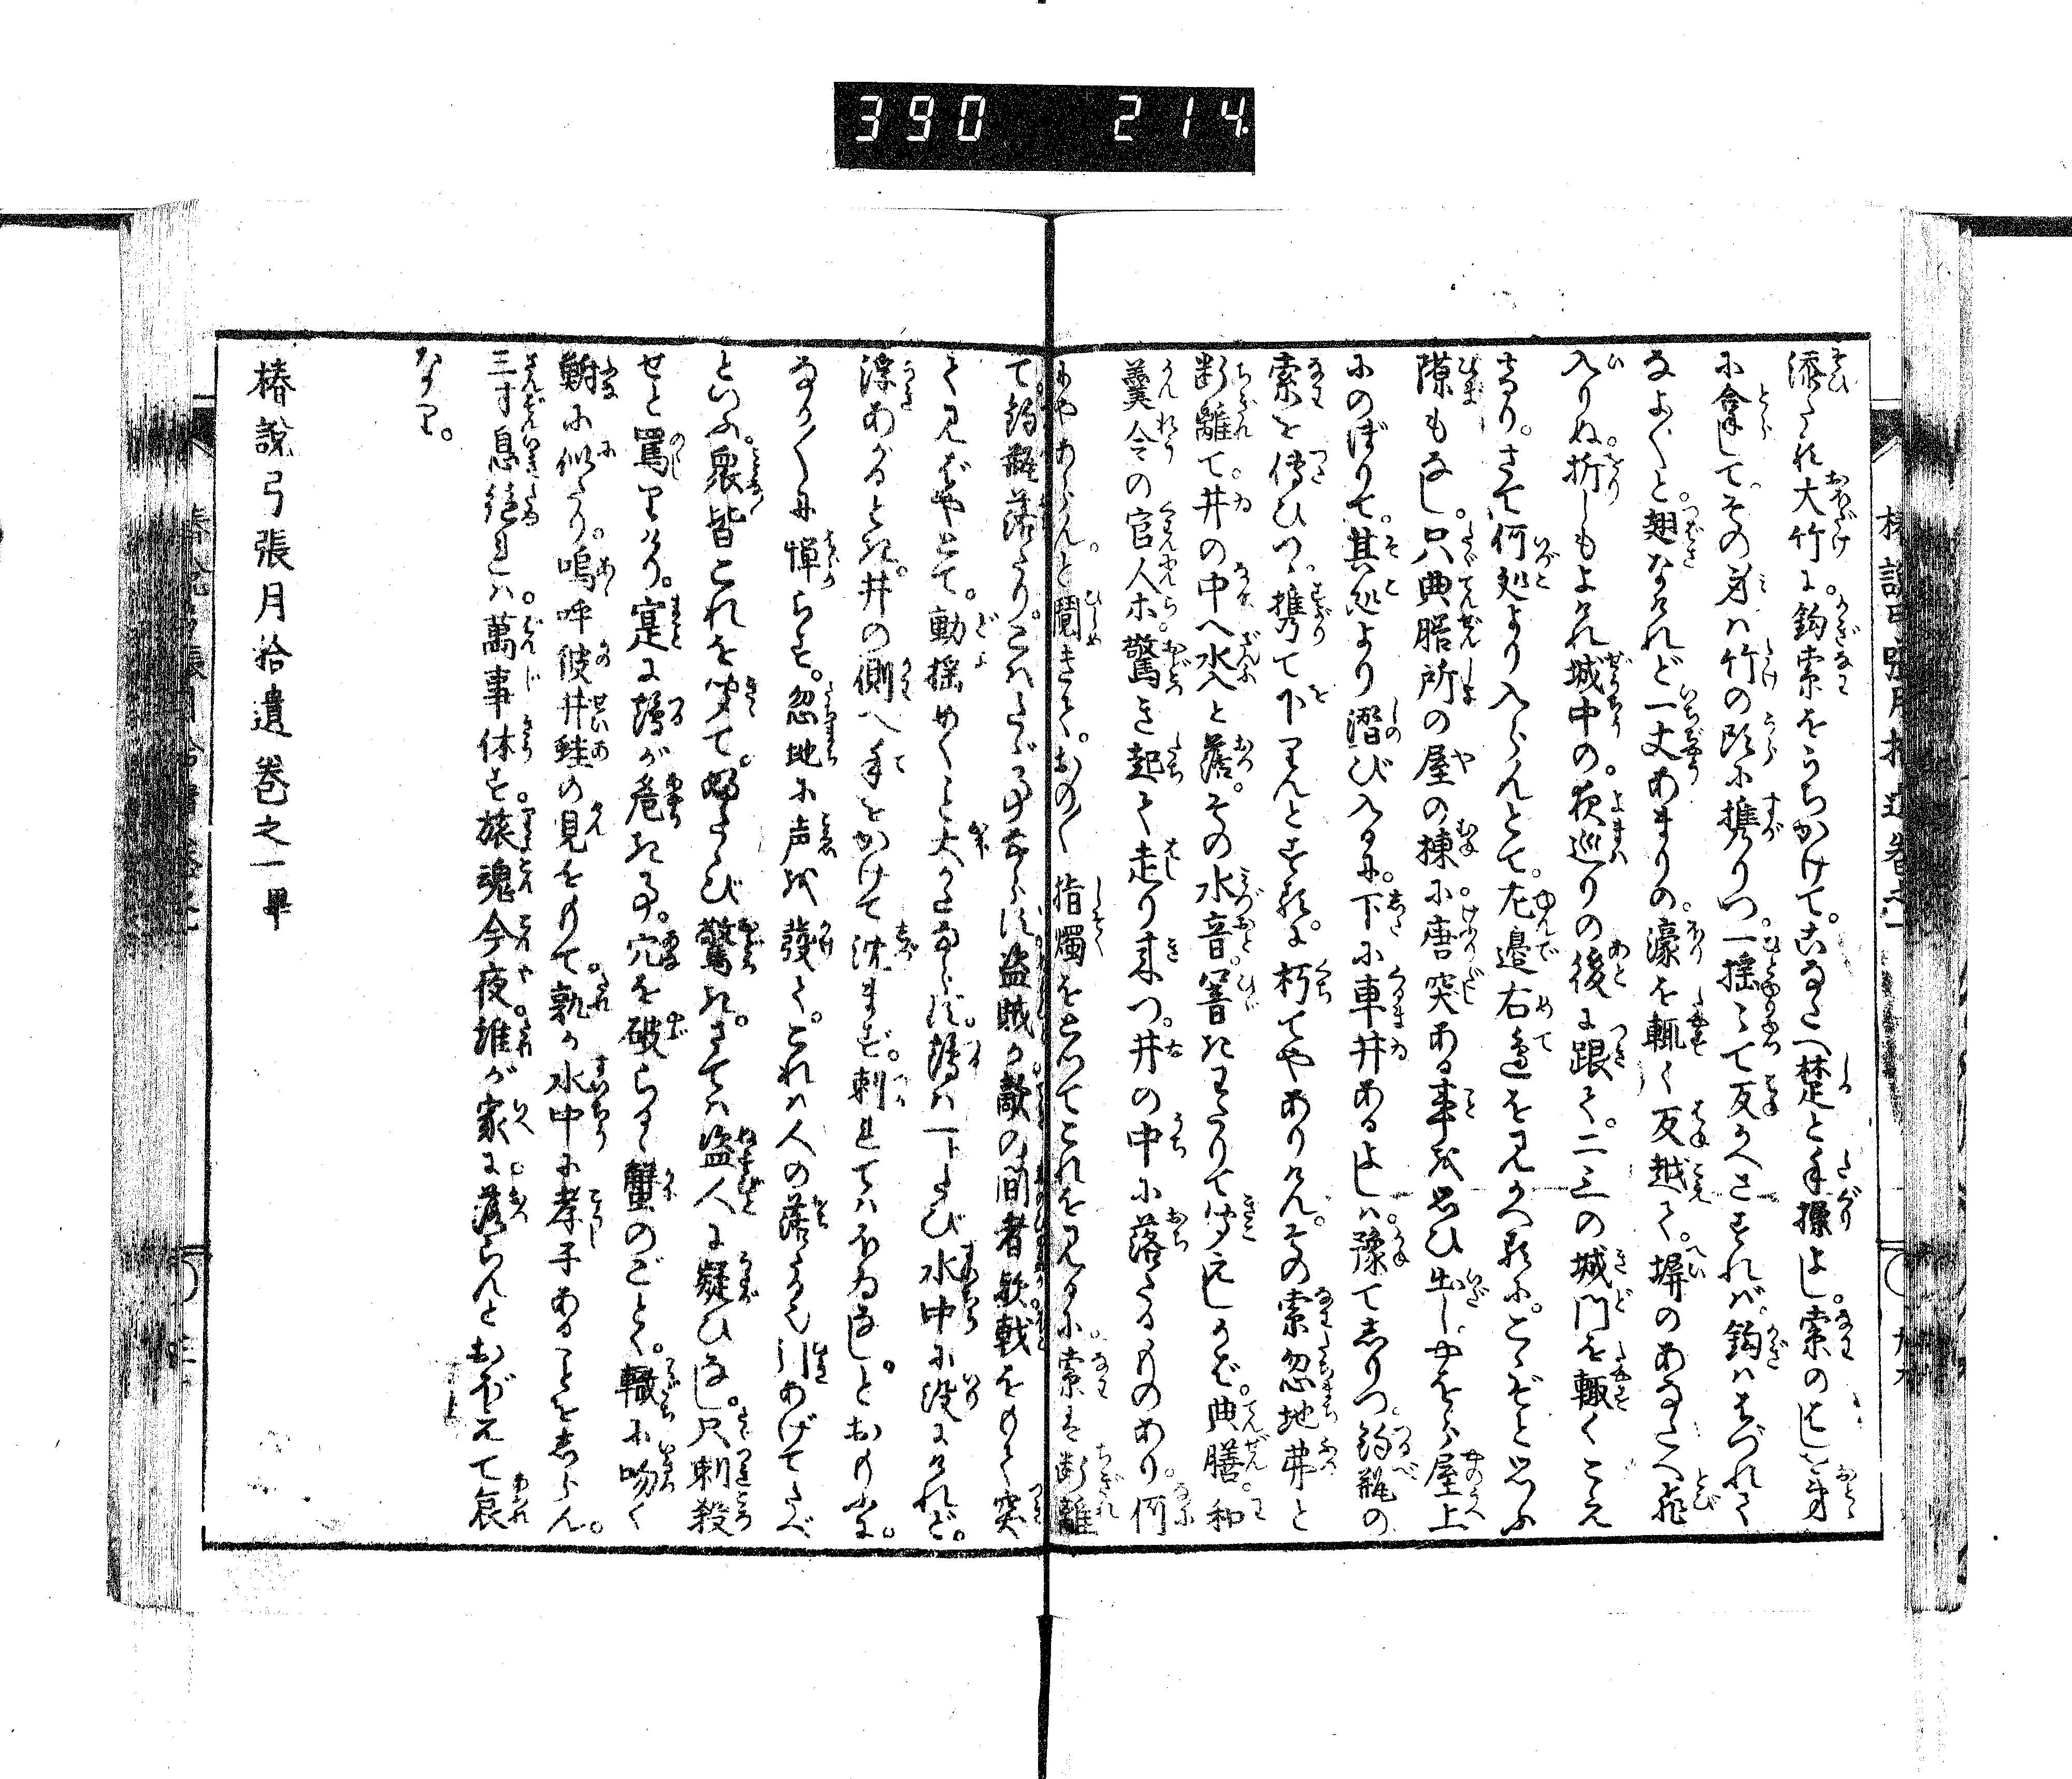 390 214
添たる大竹に。鈎索をうちかけて。こなたへ楚と手操よし。索のはしを身
に拿して その身は竹の頭に携りつ。一揺ゝて反かへさすれば。鈎ははづれて
なよ〳〵と。翅なけれど一丈あまりの。濠を輙く反越て。塀のあなたへ飛
入りぬ。折しもよけれ城中の。夜巡りの後に跟て。二三の城門を輙くこえ
さり。さて何処より入らんとて。左邉右邉を見かへるに。こゝぞと思ふ
隙もなし。只典膳所の屋の棟に。唐突ある事を思ひ出し。やをら屋上
にのぼりて。其処より潜び入るに。下に車井あるよしは。豫て志りつ。釣瓶の
索を傳ひつゝ携て下りんとする程に。朽てやありけん。その索忽地弗と
断離て。井の中へ水入と落。その水音。響きわたりて聞えしかば。典膳。和
羹令の官人ホ驚き起て走り来つ。井の中に落たるものあり。何
にやあらんと鬩きて。おの〳〵指燭をとつてこれを見るに。索は断離
て釣瓶落たり。こはたゞ事ならず。盗賊か敵の間者歟。戟をもて突
て見ばやとて。動揺めくこと大かたならず。靏は一トたび水中に没にけれど。
浮あがるとき。井の側へ手をかけて沈まず。刺れてはかなはじとおもふに。
なか〳〵に憚らず。忽地に声を發て。これは人の落たる也引あげてたべ
といふ。衆皆これを聞て。ふたゝび驚き。さては盗人に疑ひなし。只刺殺
せと罵りけり。寔に靏が危き事。穴を破らるゝ蟹のごとく。轍に吻く
鮒に似たり。嗚呼彼井蛙の見をもて。孰か水中に孝子あることを志らん。
三寸息絶れは。萬事休す。旅魂今夜。誰が家に落らんとおぼえて哀
なり。
椿説弓張月拾遺巻之一畢